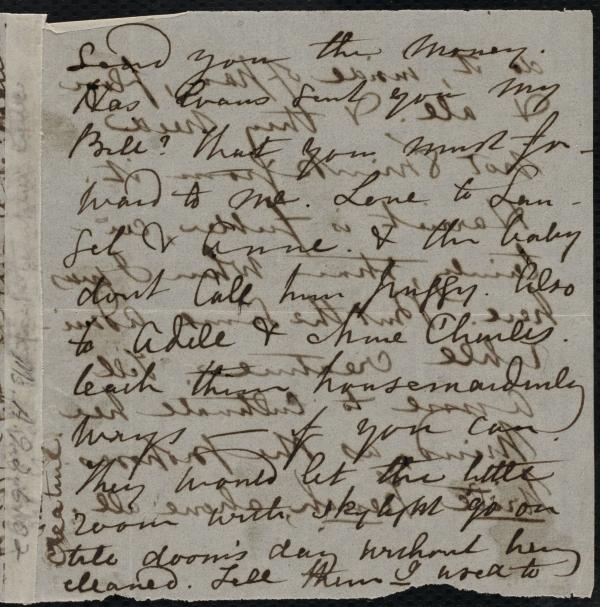 send you the money.
Has Evans sent you my
Bill? That you must for-
ward to me. Love to Lan-
sel & Anne. & the baby
dont Call him puggy. Also
to Adele & Mme Charles.
teach them housemaidenly
ways — if you can.
They would let the little
room with skylight go on
till doom's day without being
cleaned. Tell them I used to
creature.